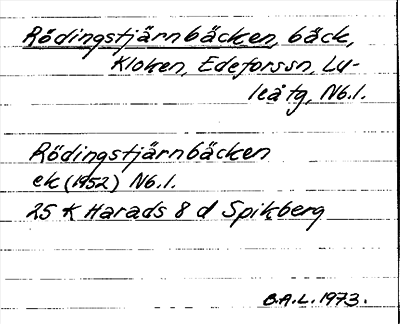 Rödingstjärnbäcken, bäck,
Kloken, Edeforssn, Lu-
leå tg, Nb.l.
Rödingstjärnbäcken
ek (1952) Nb.l.
25 K Harads 8 d Spikberg
B.A.L. 1973.